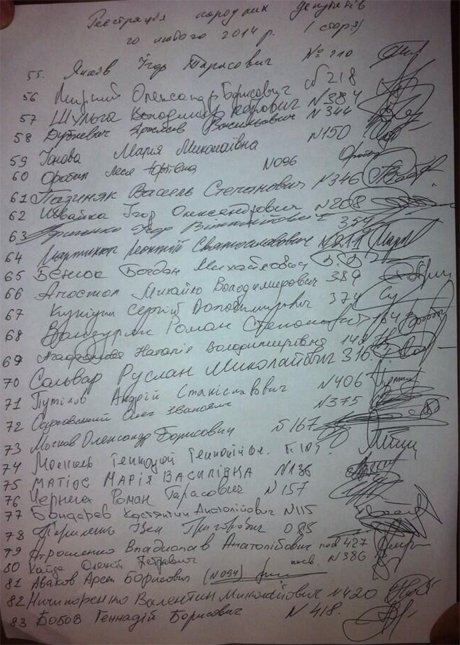 Реєстрація народних депутатів
20 лютого 2014 р. (стор 3)
55. Янків Ігор Тарасович № 210
56 Мирний Олександр Борисович № 218
57 Шульга Володимир N 384
58 Дубневич Ярослав Васильович N 344
59 Іонова Марія Миколаївна N150
60 Оробець Леся Юріївна N096
61 Пазиняк Василь Степанович N346
62 Швайка Ігор Олександрович N 208
63 Ігор 354
64 Мартинюк Леонтій Святославович N 211
65 Бенюк Богдан Михайлович
66 Апостол Михайло Володимирович 389
67 Куніцин Сергій Володимирович 374
68 Роман Степанович 164
69 Наталія Володимирівна
70 Сольвар Руслан Миколайович 316
71 Путілов Андрій Станіславович N406
72 Осуховський Олег Іванович N375
73 Мочков Олександр Борисович N 167
74 Москаль Геннадій Геннадійов.
75 МАТІОС МАРІЯ ВАСИЛІВНА N 138
76 Чернега Роман Тарасович N 157
77 Бондарєв Костянтин Анатолійович N115
78 Кириленко Іван Григорович 085
79 Атрошенко Владислав Анатолійович 427
80 Олексій Петрович N 386
81 Аваков Арсен Борисович [N094]
82 Ничипоренко Валентин Миколайович N420
83 Бобов Геннадій Борисович N 418.